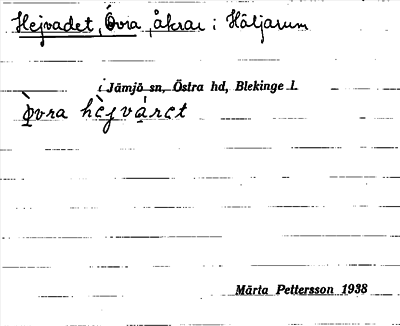 Hejvadet, Övra, åkrar i Häljarum
i Jämjö sn, Östra hd, Blekinge l.
Märta Pettersson 1938